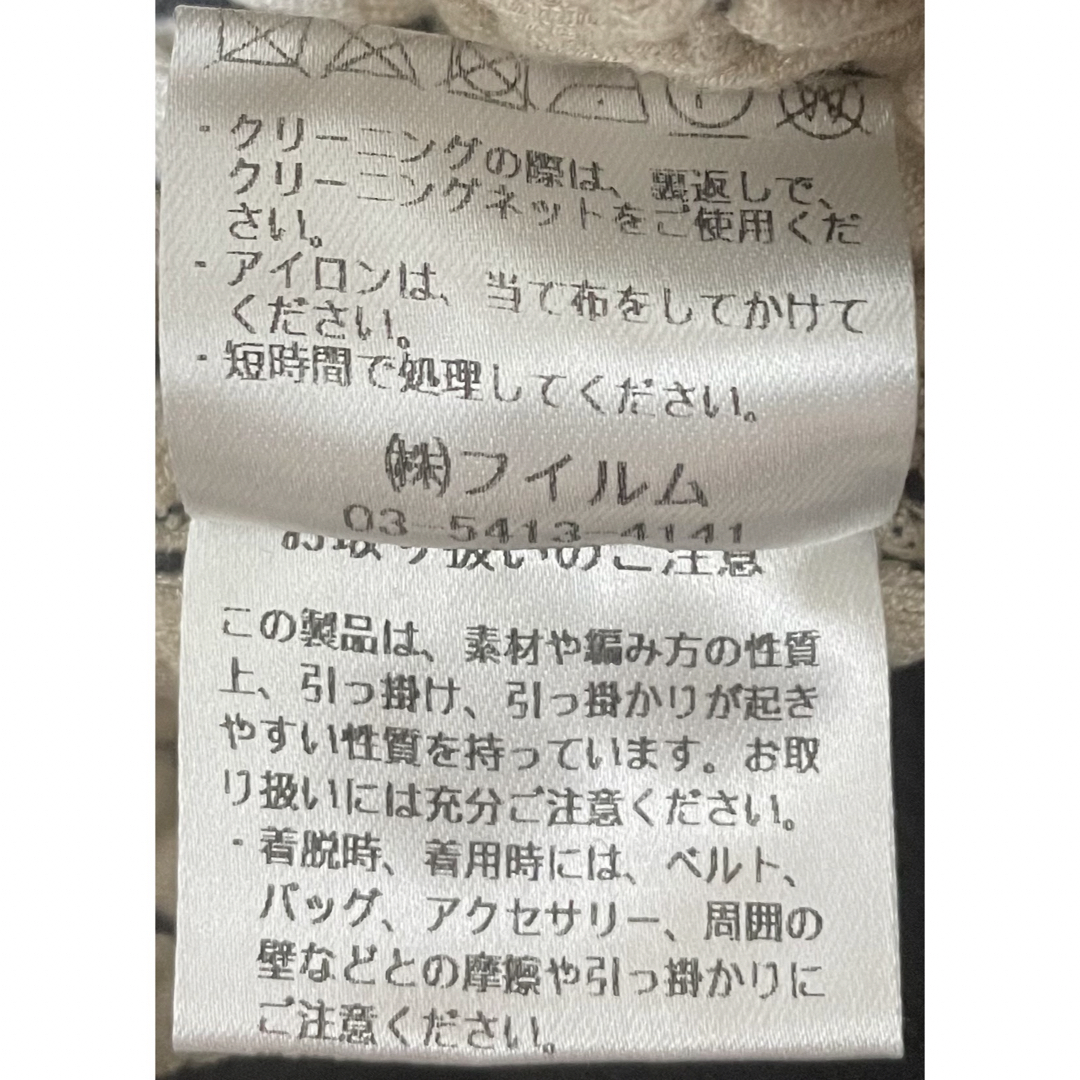 ・クリーニングの際は、裏返しで、
クリーニングネットをご使用くだ
さい。
・アイロンは、当て布をしてかけて
ください。
・短時間で処理してください。
㈱フイルム
03-5413-4141
お取り扱いのご注意
この製品は、素材や編み方の性質
上、引っ掛け、引っ掛かりが起き
やすい性質を持っています。お取
り扱いには充分ご注意ください。
・着脱時、着用時には、ベルト、
バッグ、アクセサリー、周囲の
壁などとの摩擦や引っ掛かりに
ご注意ください。